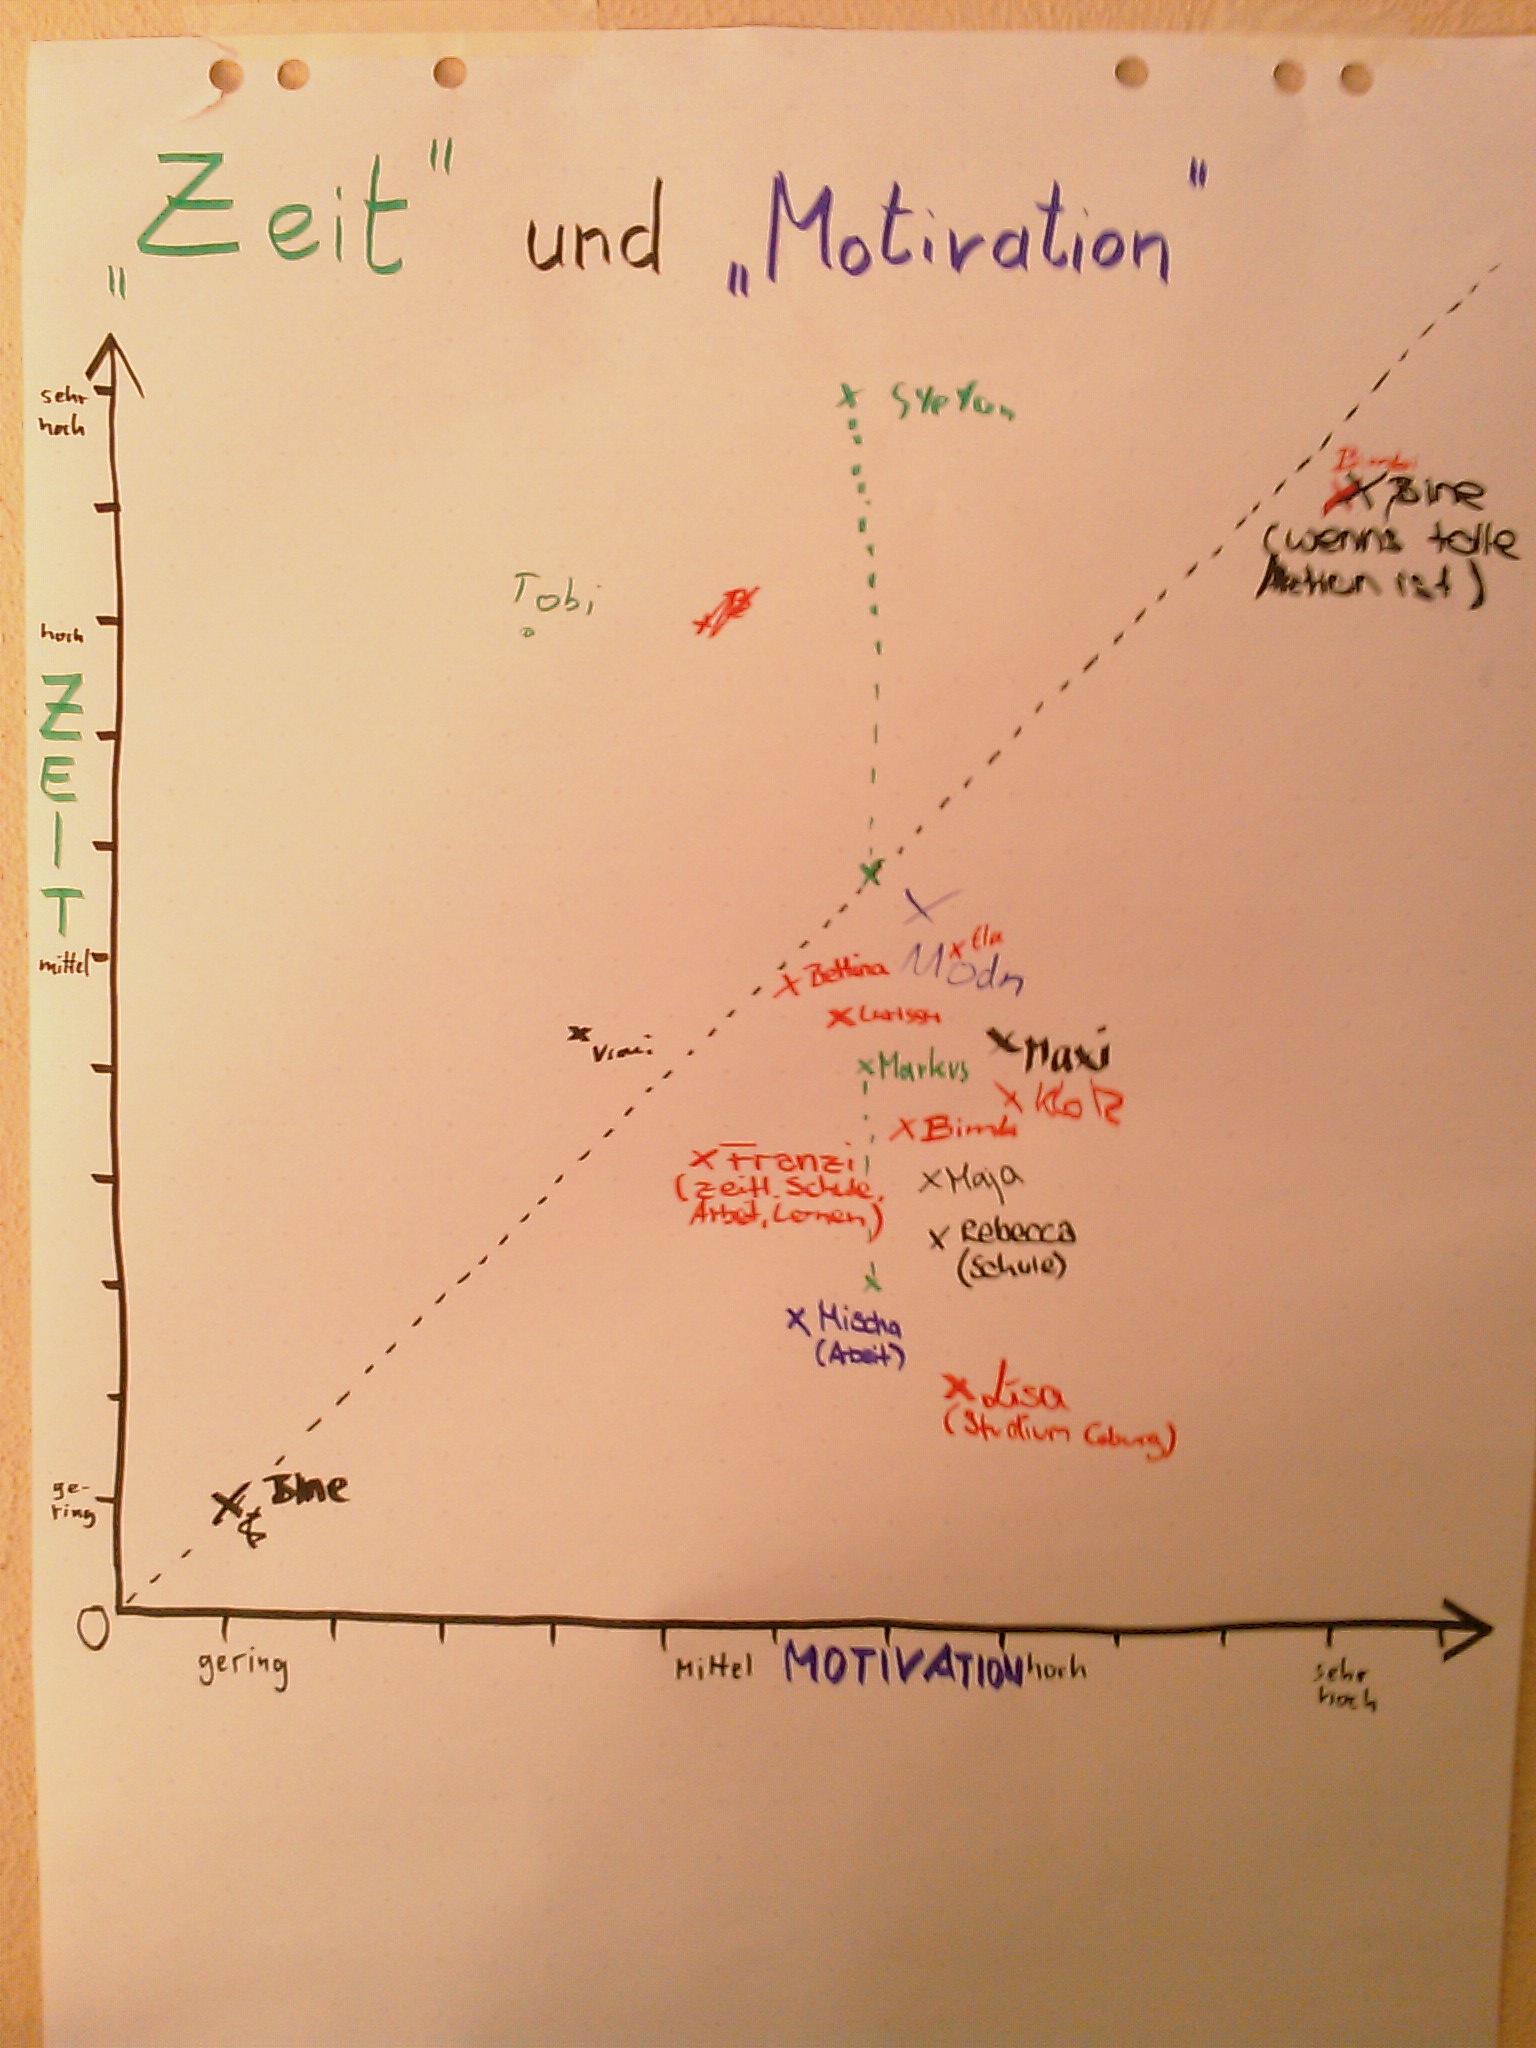 „Zeit" und „Motivation"
sehr
hoch
Stefan
Bine
(wenns tolle
Aktion ist)
Tobi
hoch
ZEIT
x Ela
Modn
x Bettina
mittel
x Larissa
x Vroni
x Maxi
x Markus
x Klotz
x Bimbi
x Franzi
(zeitl. Schule,
Arbeit, Lernen)
x Maja
x Rebecca
(Schule)
x Mischa
(Arbeit)
x Lisa
(Studium Coburg)
ge-
ring
x Bine
0
gering
Mittel
MOTIVATION
hoch
sehr
hoch